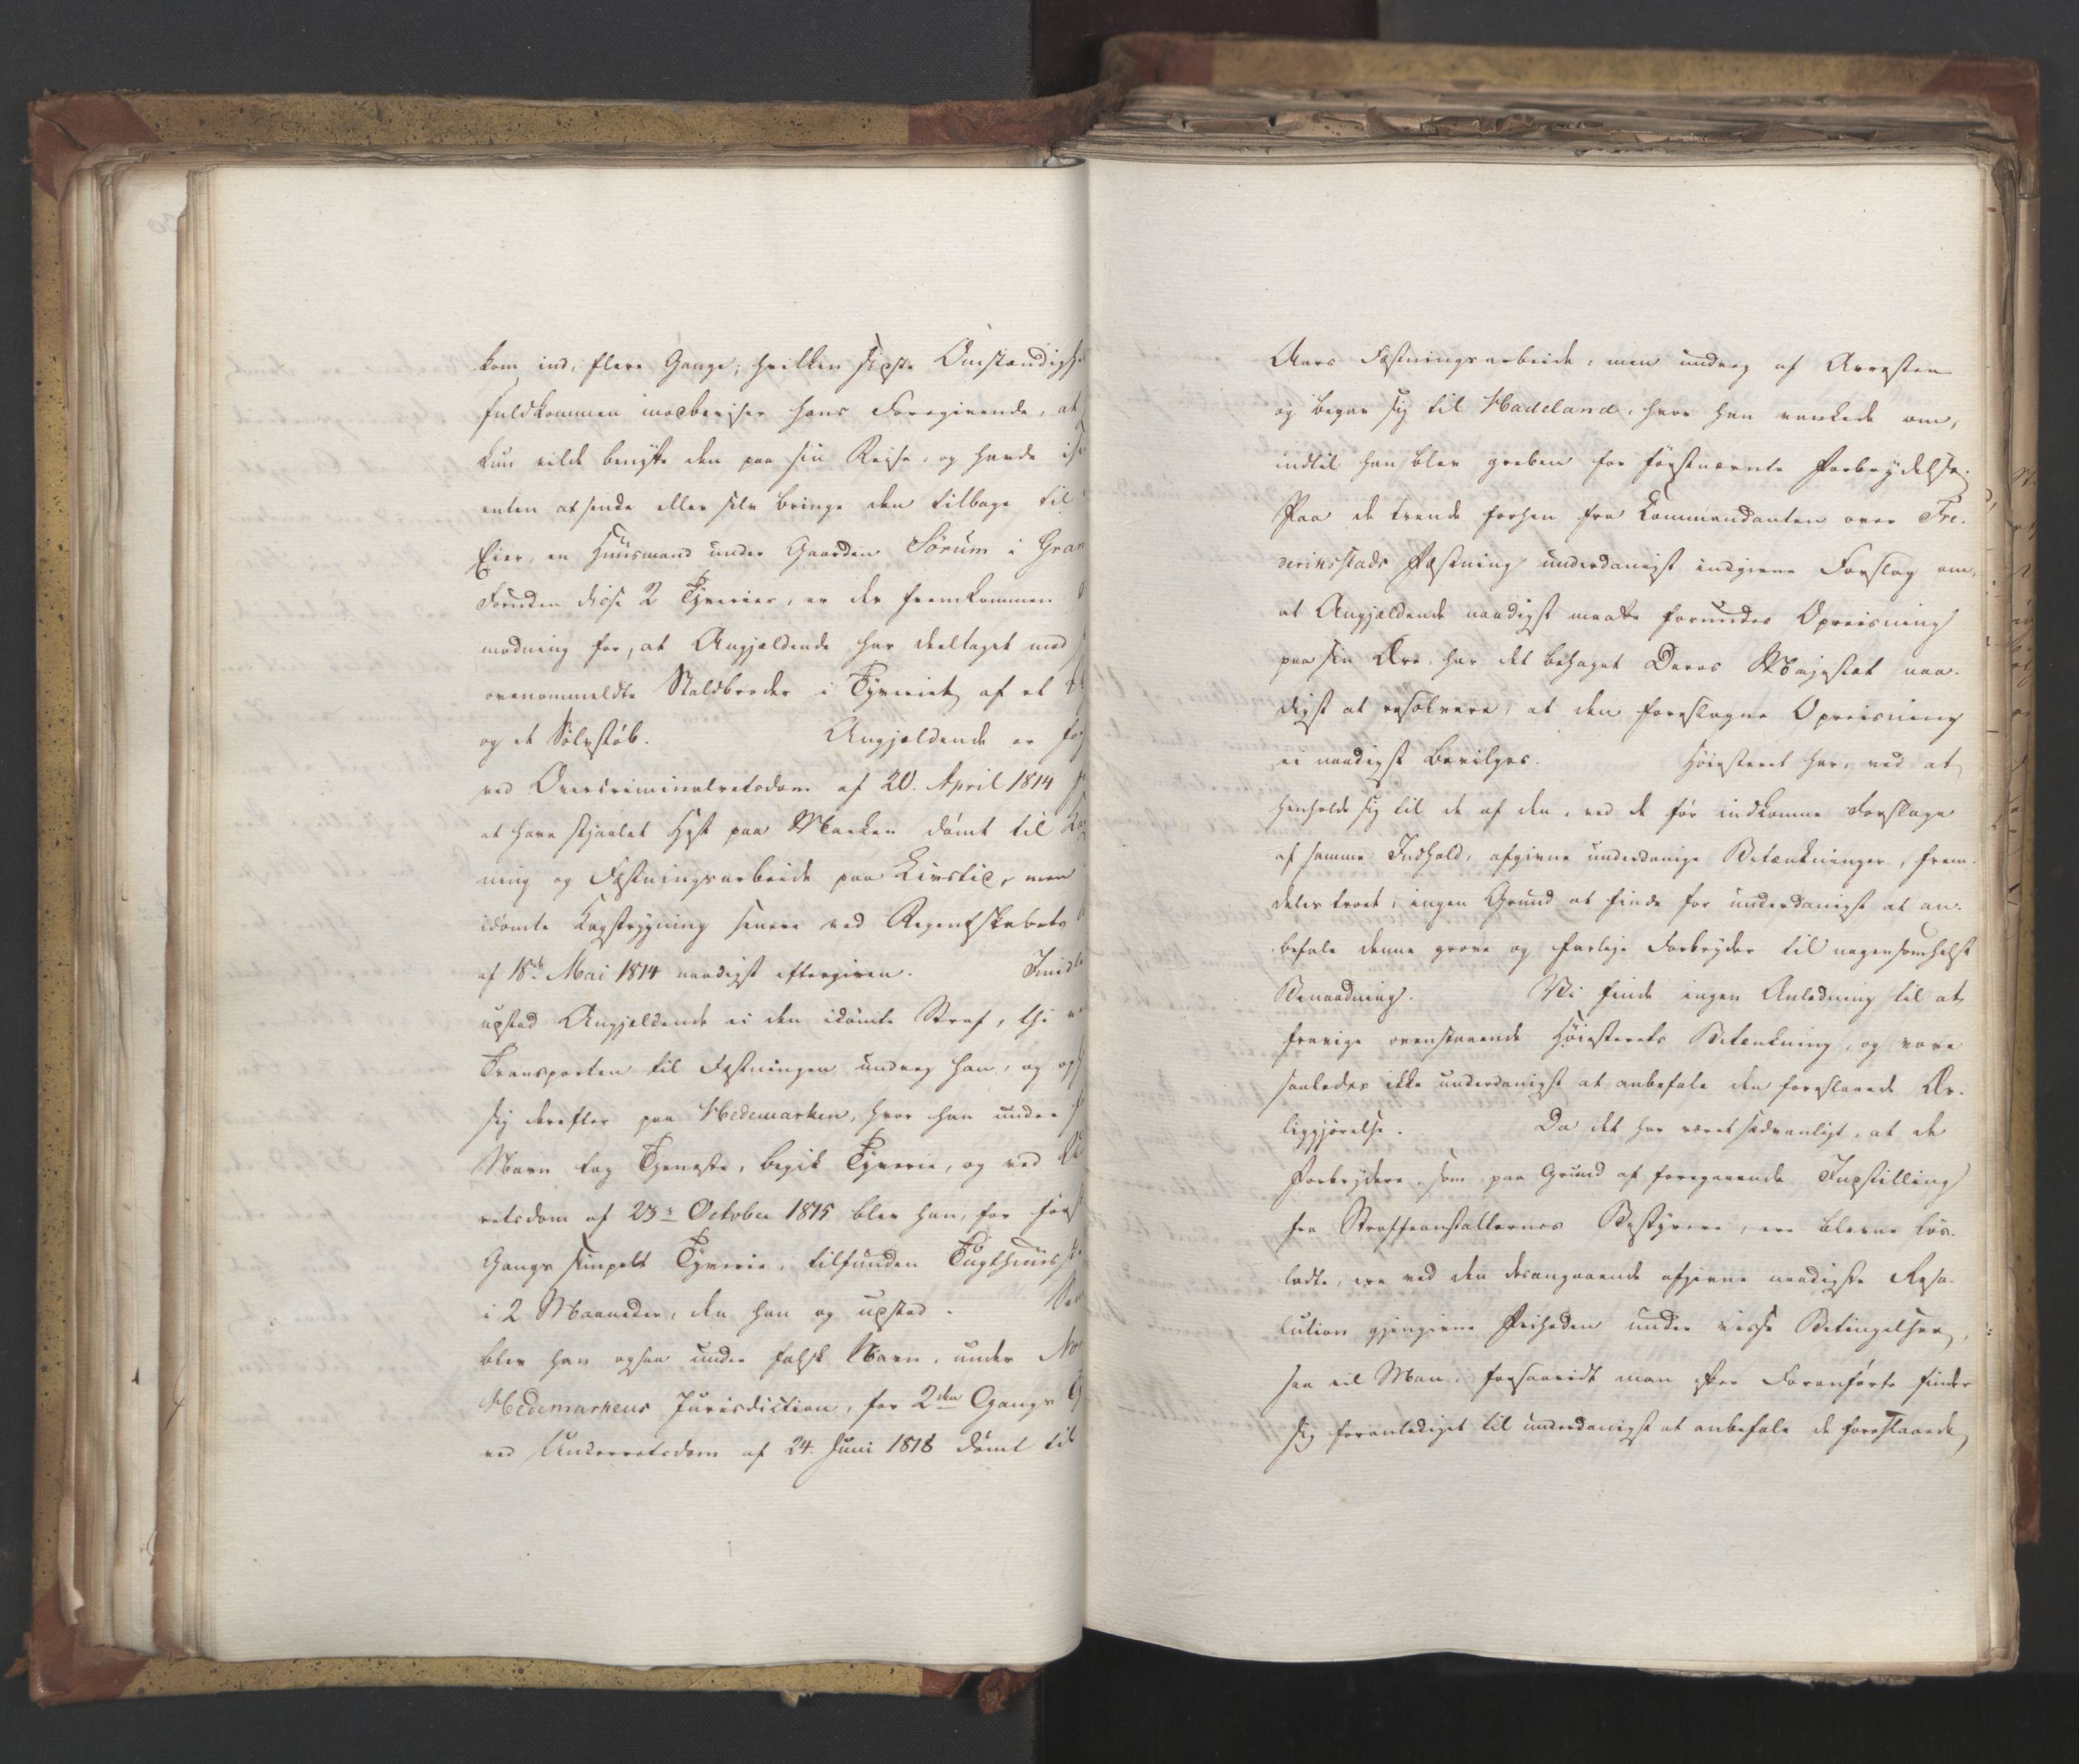 kom ind, flere Gange; hvilken sidste Omstændighe
fuldkommen modbeviser hans Foregivende, at
kun vilde benytte den paa sin Reise, og havde i
enten at sende eller selv bringe den tilbage til
Eier, en Huusmand under Gaarden Sørum i Gran
Foruden disse 2 Tyverier, er der fremkommen
modning for, at Angjældende har deeltaget med
ovenommeldte Staldbroder i Tyveriet af et
og et Sølvstøb. Angjældende er
ved Overcriminalretsdom af 20. April 1814
at have stjaalet Hest paa Marken dømt til
ning og Fæstningsarbeide paa Livstid, men
idømte Kagstrygning senere ved Regentskabets
af 18de Mai 1814 naadigst eftergiven. Imidle
udstod Angjældende ei den idømte Straf, thi
Transporten til Fæstningen undveg han, og oph
sig derefter paa Hedemarken, hvor han under
Navn tog Tjeneste, begik Tyverie, og ved
retsdom af 23de October 1815 blev han, for førs
Gangs simpelt Tyverie, tilfunden Tugthuuss
i 2 Maaneder, den han og udstod.
blev han ogsaa under falsk Navn, under No
Hedemarkens Jurisdiction, for 2den Gangs
ved Underretsdom af 24. Juni 1818 dømt til
Aars Fæstningsarbeide, men undveg af Arresten
og begav sig til Hadeland, hvor han vankede om,
indtil han blev greben for førstnævnte Forbrydelse.
Paa de trende forhen fra Kommandanten over Fre-
deriksstads Fæstning underdanigst indgivne Forslag om,
at Angjældende naadigst maatte forundes Opreisning
paa sin Ære, har det behaget Deres Majestæt naa-
digst at resolvere, at den foreslagne Opreisning
ei naadigst bevilges. Høiesteret har, ved at
henholde sig til de af den, ved de før indkomne Forslage
af samme Indhold, afgivne underdanige Betænkninger, frem-
deles troet, ingen Grund at finde for underdanigst at an-
befale denne grove og farlige Forbryder til nogensomhelst
Benaadning. Vi finde ingen Anledning til at
fravige ovenstaaende Høiesterets Betænkning, og vove
saaledes ikke underdanigst at anbefale den foreslaaede Ær-
liggjørelse. Da det har været sædvanligt, at de
Forbrydere, som paa Grund af foregaaende Indstilling
fra Straffeanstalternes Bestyrere, ere blevne løs-
ladte, ere ved den desangaaende afgivne naadigste Reso-
lution gjengivne Friheden under visse Betingelser,
saa vil Man, forsaavidt man efter Foranførte finder
sig foranlediget til underdanigst at anbefale de foreslaaede